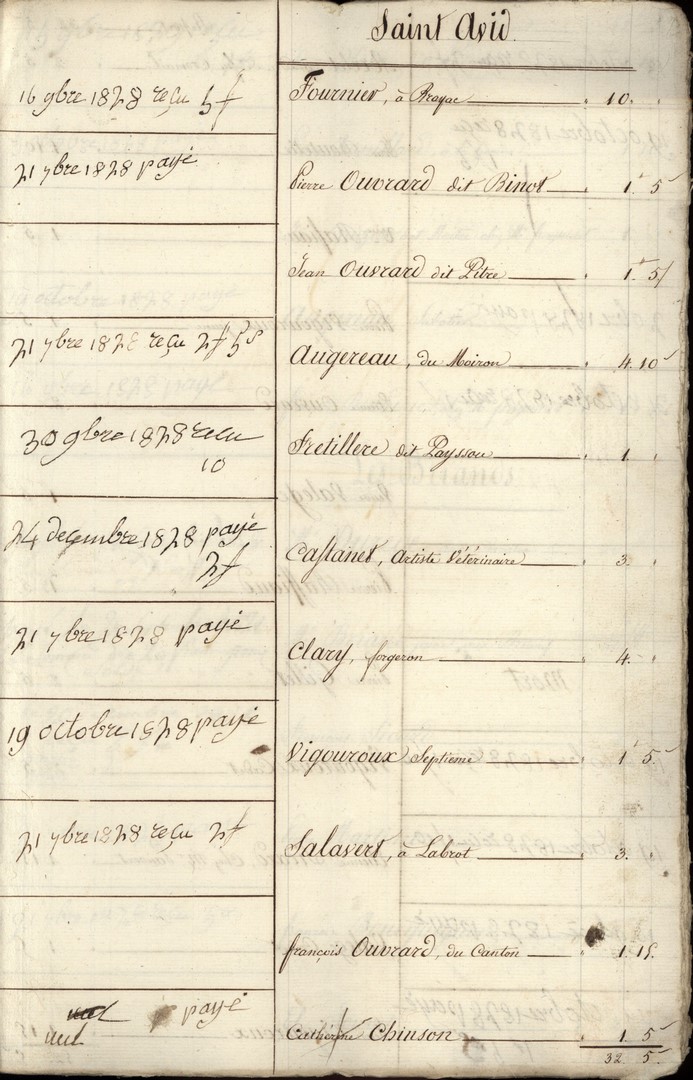 Saint Avid.
16 9bre 1828 reçu 5f
Fournier, à Brayac 10.
21 7bre 1828 payé
Pierre Ouvrard dit Binot 1. 5
Jean Ouvrard dit Pitre 1. 5
21 7bre 1828 reçu 2f 5s
Augereau, du Moiron 4. 10
30 9bre 1828 recu
10
Fretillere dit Payssou 1
24 decembre 1828 payé
2f
Castanet, Artiste Vétérinaire 3
21 7bre 1828 payé
Clary, forgeron 4.
19 octobre 1828 payé
Vigouroux Septieme 1. 5
21 7bre 1828 reçu 2f
Salavert, à Labrot 3.
françois Ouvrard, du Canton 1. 15.
payé
nul
Catherine Chinson 1. 5
32. 5